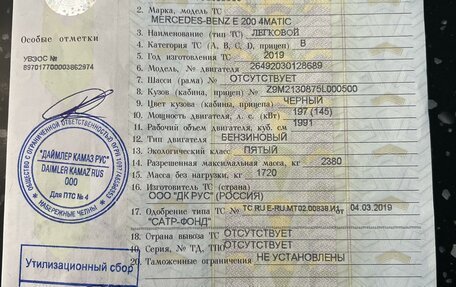 Особые отметки
УВЭОС №
897017700003862974
"ДАЙМЛЕР КАМАЗ РУС"
DAIMLER KAMAZ RUS
ООО
Для ПТС № 4
НАБЕРЕЖНЫЕ ЧЕЛНЫ
Утилизационный сбор
2. Марка, модель ТС
MERCEDES-BENZ E 200 4MATIC
3. Наименование (тип ТС) ЛЕГКОВОЙ
4. Категория ТС (A, B, C, D, прицеп) B
5. Год изготовления ТС 2019
6. Модель, № двигателя 26492030128689
7. Шасси (рама) № ОТСУТСТВУЕТ
8. Кузов (кабина, прицеп) № Z9M2130875L000500
9. Цвет кузова (кабины, прицепа) ЧЕРНЫЙ
10. Мощность двигателя, л. с. (кВт) 197 (145)
11. Рабочий объем двигателя, куб. см 1991
12. Тип двигателя БЕНЗИНОВЫЙ
13. Экологический класс ПЯТЫЙ
14. Разрешенная максимальная масса, кг 2380
15. Масса без нагрузки, кг 1720
16. Изготовитель ТС (страна)
ООО "ДК РУС" (РОССИЯ)
17. Одобрение типа ТС № ТС RU Е-RU.МТ02.00838.И1 от 04.03.2019
"САТР-ФОНД"
18. Страна вывоза ТС ОТСУТСТВУЕТ
19. Серия, № ТД, ТПО ОТСУТСТВУЕТ
20. Таможенные ограничения НЕ УСТАНОВЛЕНЫ